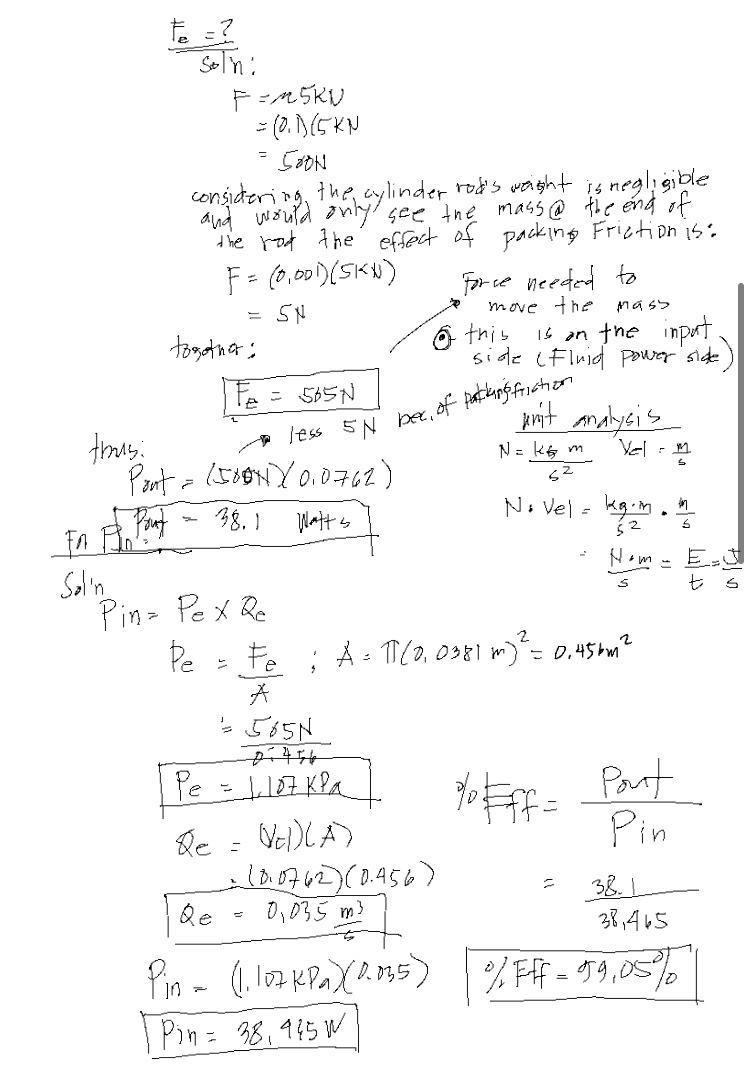 Fe = ?
Sol'n:
F = μ5KN
= (0.1)(5KN
= 500N
considering the cylinder rod's weight is negligible
and would only see the mass @ the end of
the rod the effect of packing Friction is:
F = (0,001)(5KN)
= 5N
Force needed to
move the mass
this is on the input
side (Fluid power side)
together:
Fe = 505N
less 5N bec. of packing friction
thus:
Pout = (500N)(0.0762)
Pout = 38.1 Watts
unit analysis
N = kg m / s2 Vel = m / s
N . Vel = kg.m / s2 . m / s
= N.m / s = E / t = J / s
Fn Pin:
Sol'n
Pin = Pe x Qe
Pe = Fe / A ; A = π(0,0381 m)2 = 0.456m2
= 505N / 0.456
Pe = 1.107 KPa
Qe = (Vel)(A)
= (0.0762)(0.456)
Qe = 0,035 m3 / s
Pin = (1.107KPa)(0.035)
Pin = 38,465 W
% Eff = Pout / Pin
= 38.1 / 38,465
% Eff = 99,05%